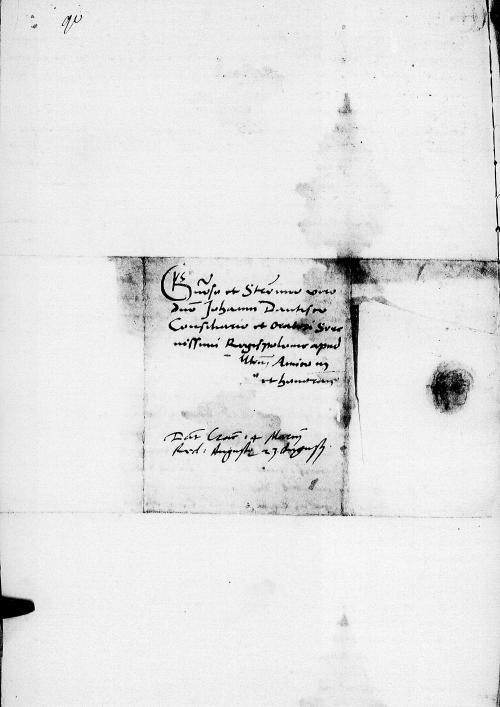 G[ene]roso et Strenuo viro
d[omi]no Johanni Dantisco
Consiliario et Oratori Sere
nissimi Regis polonie apud
Amico
et honoran
Dat Crac: 4 Marcij
Red: Auguste 27 Augusti